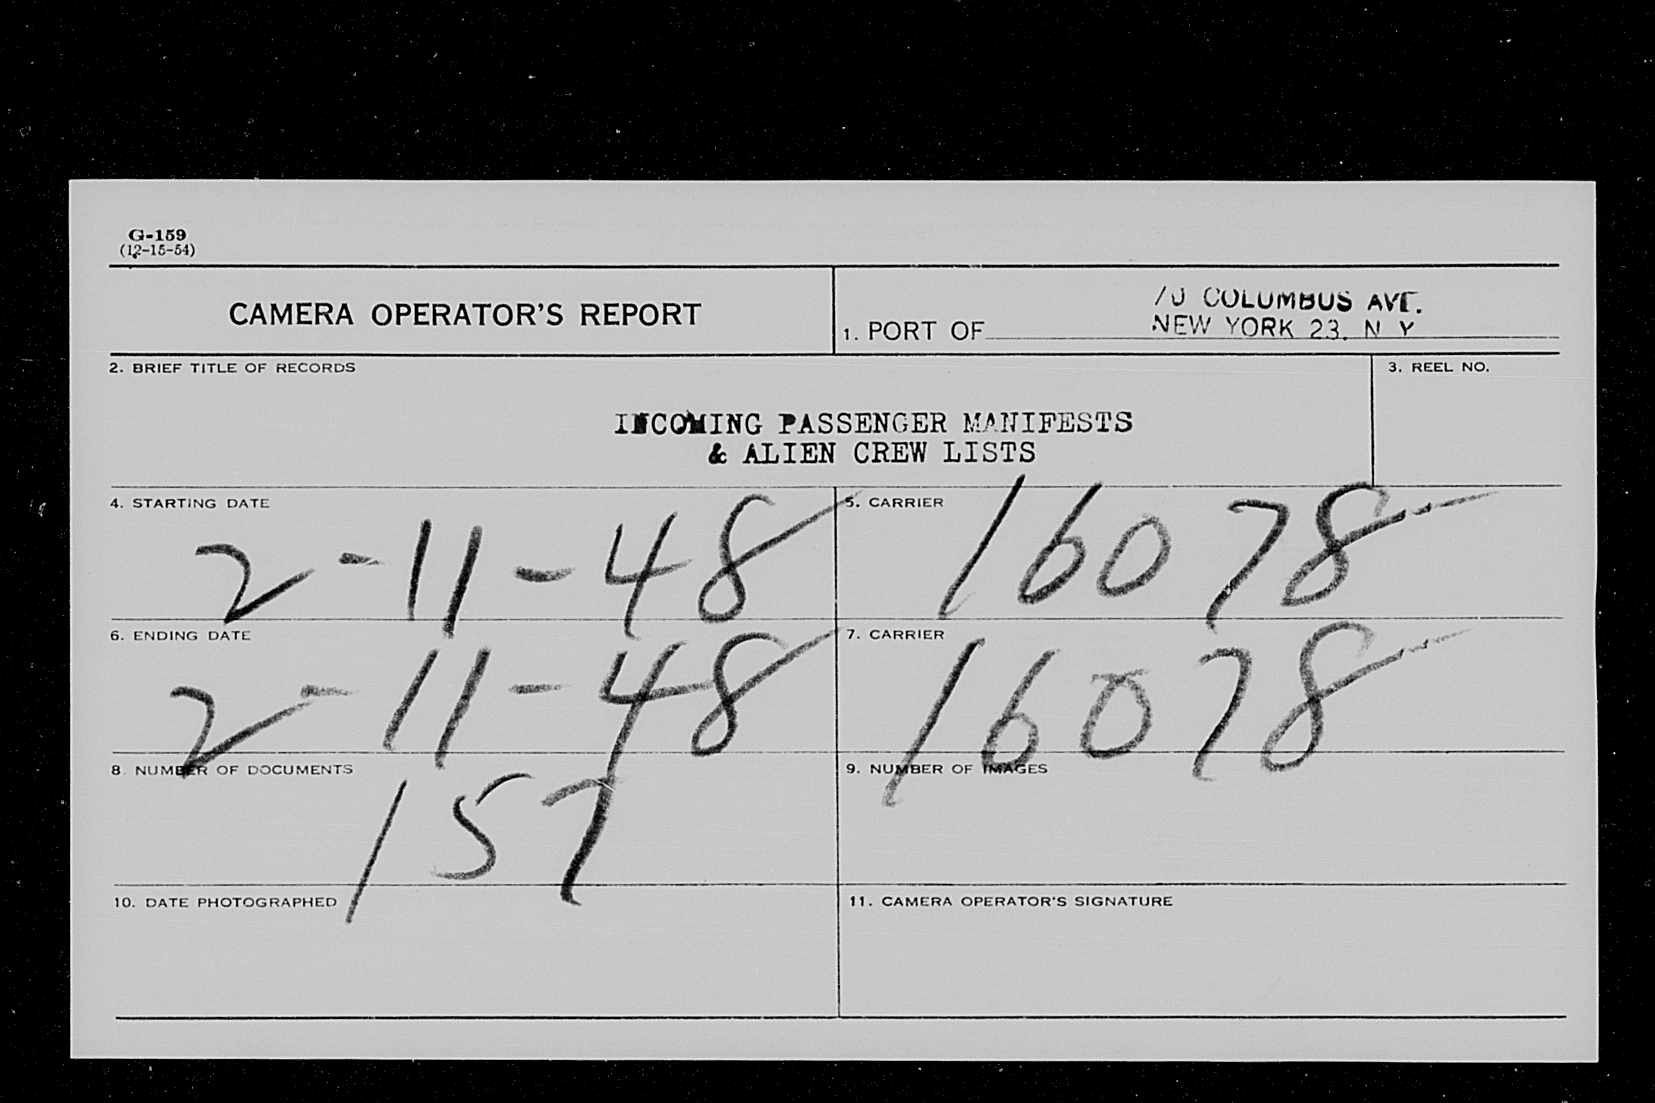 G-159
(12-15-54)
CAMERA OPERATOR'S REPORT
1. PORT OF
70 COLUMBUS AVE.
NEW YORK 23, N Y
2. BRIEF TITLE OF RECORDS
3. REEL NO.
INCOMING PASSENGER MANIFESTS
& ALIEN CREW LISTS
4. STARTING DATE
2-11-48
5. CARRIER
16078
6. ENDING DATE
2-11-48
7. CARRIER
16078
8. NUMBER OF DOCUMENTS
157
9. NUMBER OF IMAGES
10. DATE PHOTOGRAPHED
11. CAMERA OPERATOR'S SIGNATURE